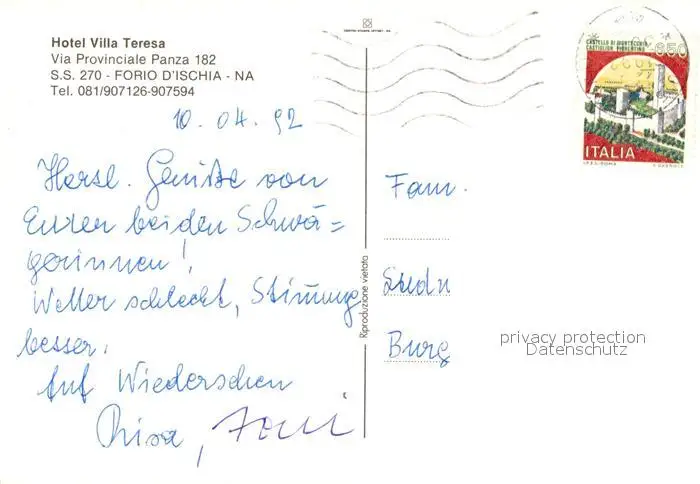 Hotel Villa Teresa
Via Provinciale Panza 182
S.S. 270 - FORIO D'ISCHIA - NA
Tel. 081/907126-907594
CASTELLO DI MONTECCHIO
CASTIGLION FIORENTINO
650
ITALIA
10. 04. 92
Herzl. Grüße von
Euren beiden Schwä=
gerinnen!
Wetter schlecht, Stimmung
besser.
Auf Wiedersehen
Fam.
Burg
Riproduzione vietata
privacy protection
Datenschutz